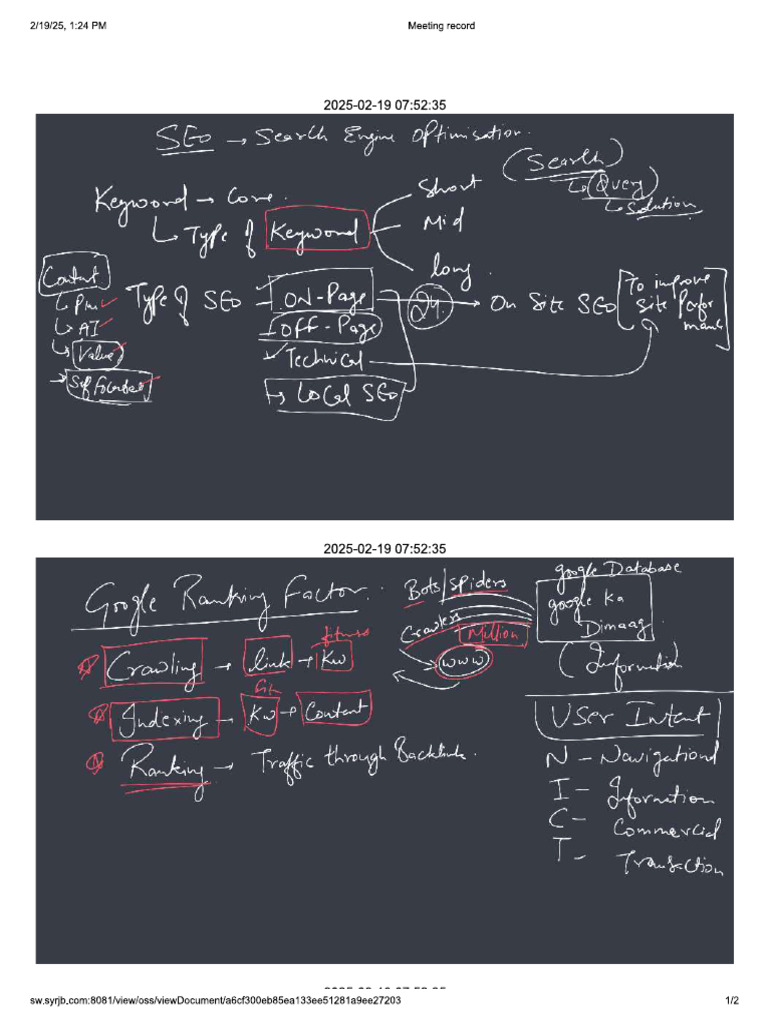 2/19/25, 1:24 PM
Meeting record
2025-02-19 07:52:35
SEO → Search Engine Optimisation.
(Search)
↳ (Query)
↳ Solution
Keyword → Core.
↳ Type of Keyword
Short
Mid
long.
Content
↳ AI
↳ Value
Type of SEO
ON-Page
→ On Site SEO
[To improve
site Perfor
mance]
OFF-Page
Technical
↳ LOCal SEO
2025-02-19 07:52:35
Google Ranking Factor.
Bots/Spiders
Crawlers
Million
www
google Database
google ka
Dimaag
(Information
fitness
Crawling → link → Kw
Indexing → Kw → Content
Ranking → Traffic through Backlink.
User Intent
N - Navigational
I - Information
C - Commercial
T - Transaction
sw.syrjb.com:8081/view/oss/viewDocument/a6cf300eb85ea133ee51281a9ee27203
1/2